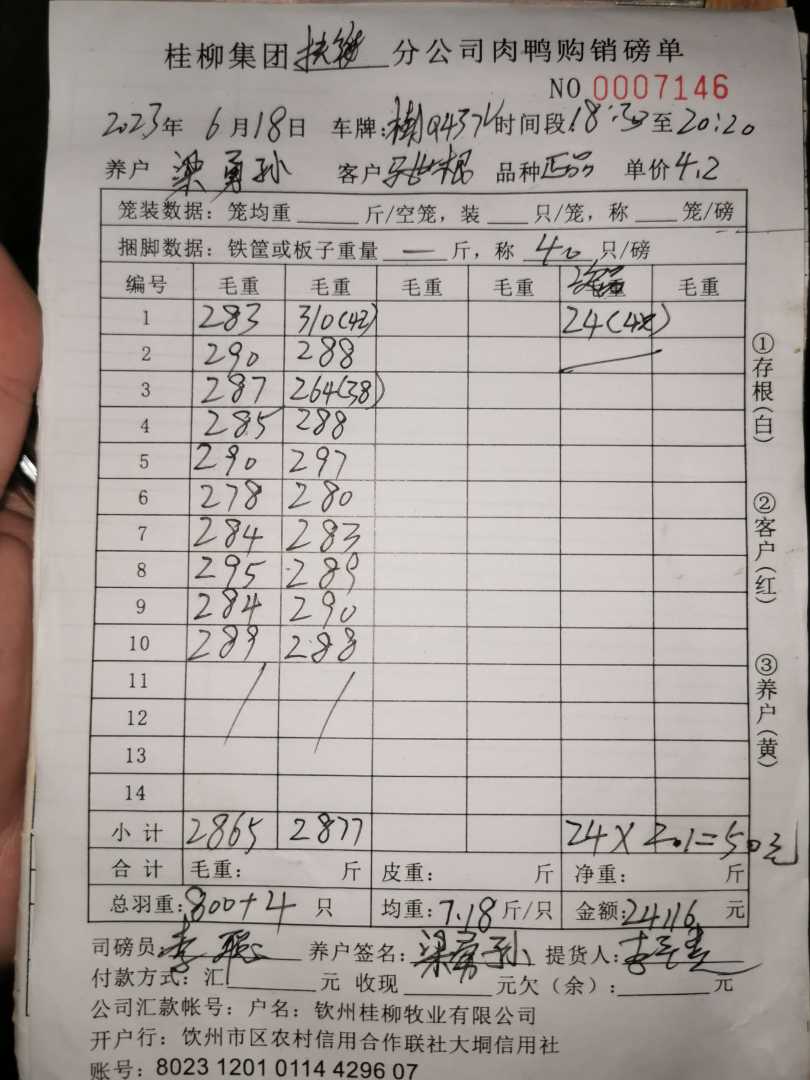 桂柳集团扶绥分公司肉鸭购销磅单
NO 0007146
2023年 6月18日 车牌: 时间段18:30至20:20
养户 梁勇孙 客户 品种正品 单价4.2
笼装数据：笼均重 斤/空笼，装 只/笼，称 笼/磅
捆脚数据：铁筐或板子重量 — 斤，称 40 只/磅
编号 毛重 毛重 毛重 毛重 毛重
1 283 310(42) 24(4只)
2 290 288
3 287 264(38)
4 285 288
5 290 297
6 278 280
7 284 283
8 295 289
9 284 290
10 289 288
11
12
13
14
小计 2865 2877 24×2.1=50元
合计 毛重： 斤 皮重： 斤 净重： 斤
总羽重:800+4 只 均重:7.18斤/只 金额:24116 元
司磅员: 养户签名:梁勇孙 提货人:
付款方式：汇 元 收现 元欠（余）: 元
公司汇款帐号：户名：钦州桂柳牧业有限公司
开户行：钦州市区农村信用合作联社大垌信用社
账号：8023 1201 0114 4296 07
①存根(白)
②客户(红)
③养户(黄)